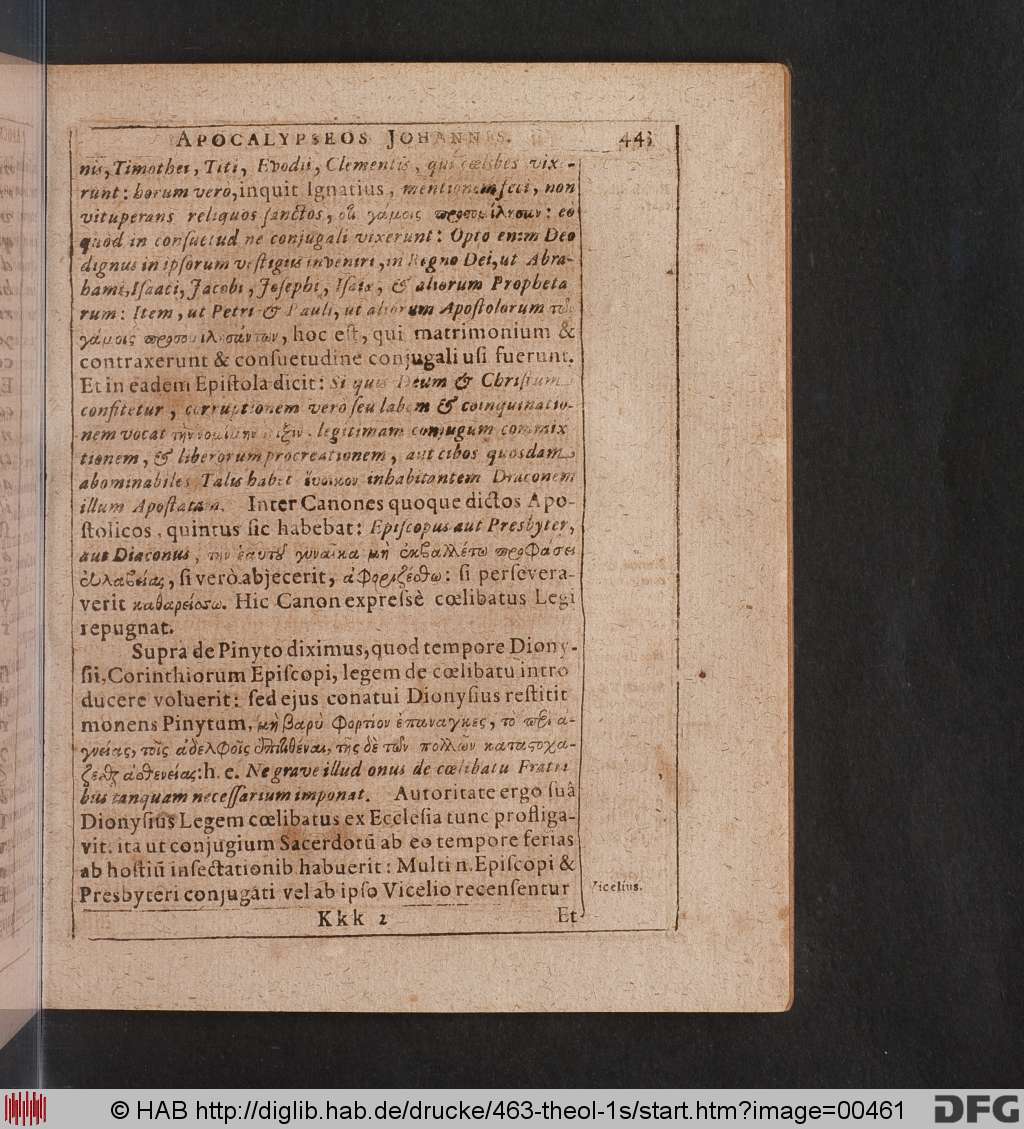 APOCALYPSEOS JOHANNIS. 443
nis, Timothei, Titi, Evodii, Clementis, qui cœlibes vixe-
runt: horum verò, inquit Ignatius, mentionem feci, non
vituperans reliquos sanctos, οἳ γάμοις προσωμίλησαν: eò
quòd in consuetudine conjugali vixerunt: Opto enim Deo
dignus in ipsorum vestigiis inveniri, in Regno Dei, ut Abra-
hami, Isaaci, Jacobi, Josephi, Isaiæ, & aliorum Propheta
rum: Item, ut Petri & Pauli, ut aliorum Apostolorum τῶν
γάμοις προσομιλησάντων, hoc est, qui matrimonium &
contraxerunt & consuetudine conjugali usi fuerunt.
Et in eadem Epistola dicit: Si quis Deum & Christum
confitetur, corruptionem verò seu labem & coinquinatio-
nem vocat τὴν νομίμην μίξιν, legitimam conjugum commix
tionem, & liberorum procreationem, aut cibos quosdam
abominabiles, Talis habet ἔνοικον inhabitantem Draconem
illum Apostatam. Inter Canones quoque dictos Apo-
stolicos, quintus sic habebat: Episcopus aut Presbyter,
aut Diaconus, τὴν ἑαυτοῦ γυναῖκα μὴ ἐκβαλλέτω προφάσει
ἐυλαβείας, si verò abjecerit, ἀφοριζέσθω: si persevera-
verit καθαρείσθω. Hic Canon expressè cœlibatus Legi
repugnat.
Supra de Pinyto diximus, quod tempore Diony-
sii, Corinthiorum Episcopi, legem de cœlibatu intro
ducere voluerit: sed ejus conatui Dionysius restitit
monens Pinytum, μὴ βαρὺ φορτίον ἐπαναγκες, τὸ περὶ ἁ-
γνείας, τοῖς ἀδελφοῖς ἐπιτιθέναι, τῆς δὲ τῶν πολλῶν καταστοχά-
ζεσθαι ἀσθενείας: h. e. Ne grave illud onus de cœlibatu Fratri
bus tanquam necessarium imponat. Autoritate ergo suâ
Dionysius Legem cœlibatus ex Ecclesia tunc profliga-
vit, ita ut conjugium Sacerdotū ab eo tempore ferias
ab hostiū insectationib habuerit: Multi n. Episcopi &
Presbyteri conjugati vel ab ipso Vicelio recensentur
Vicelius.
Kkk 2 Et
© HAB http://diglib.hab.de/drucke/463-theol-1s/start.htm?image=00461 DFG